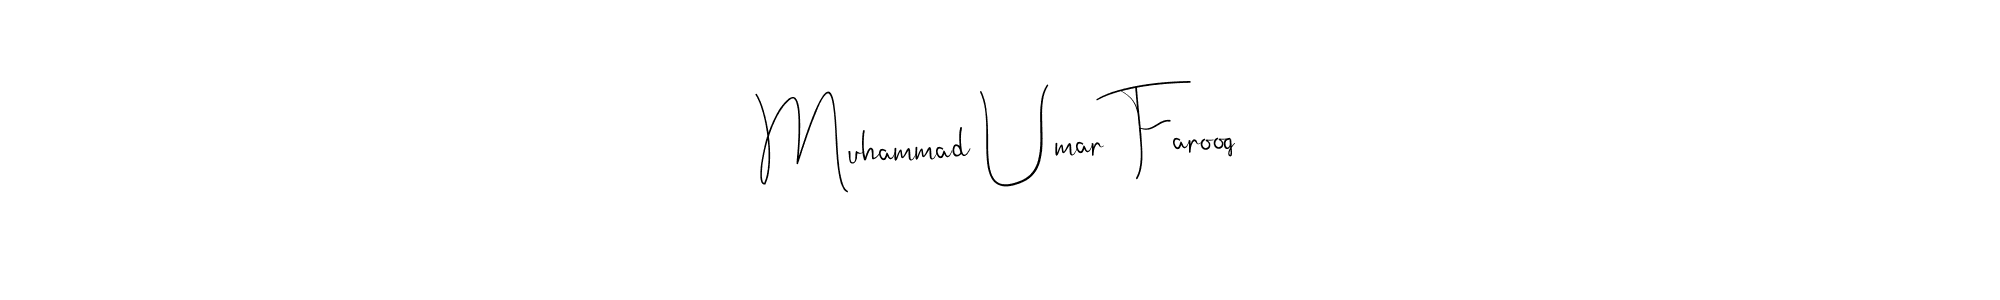 Muhammad Umar Farooq